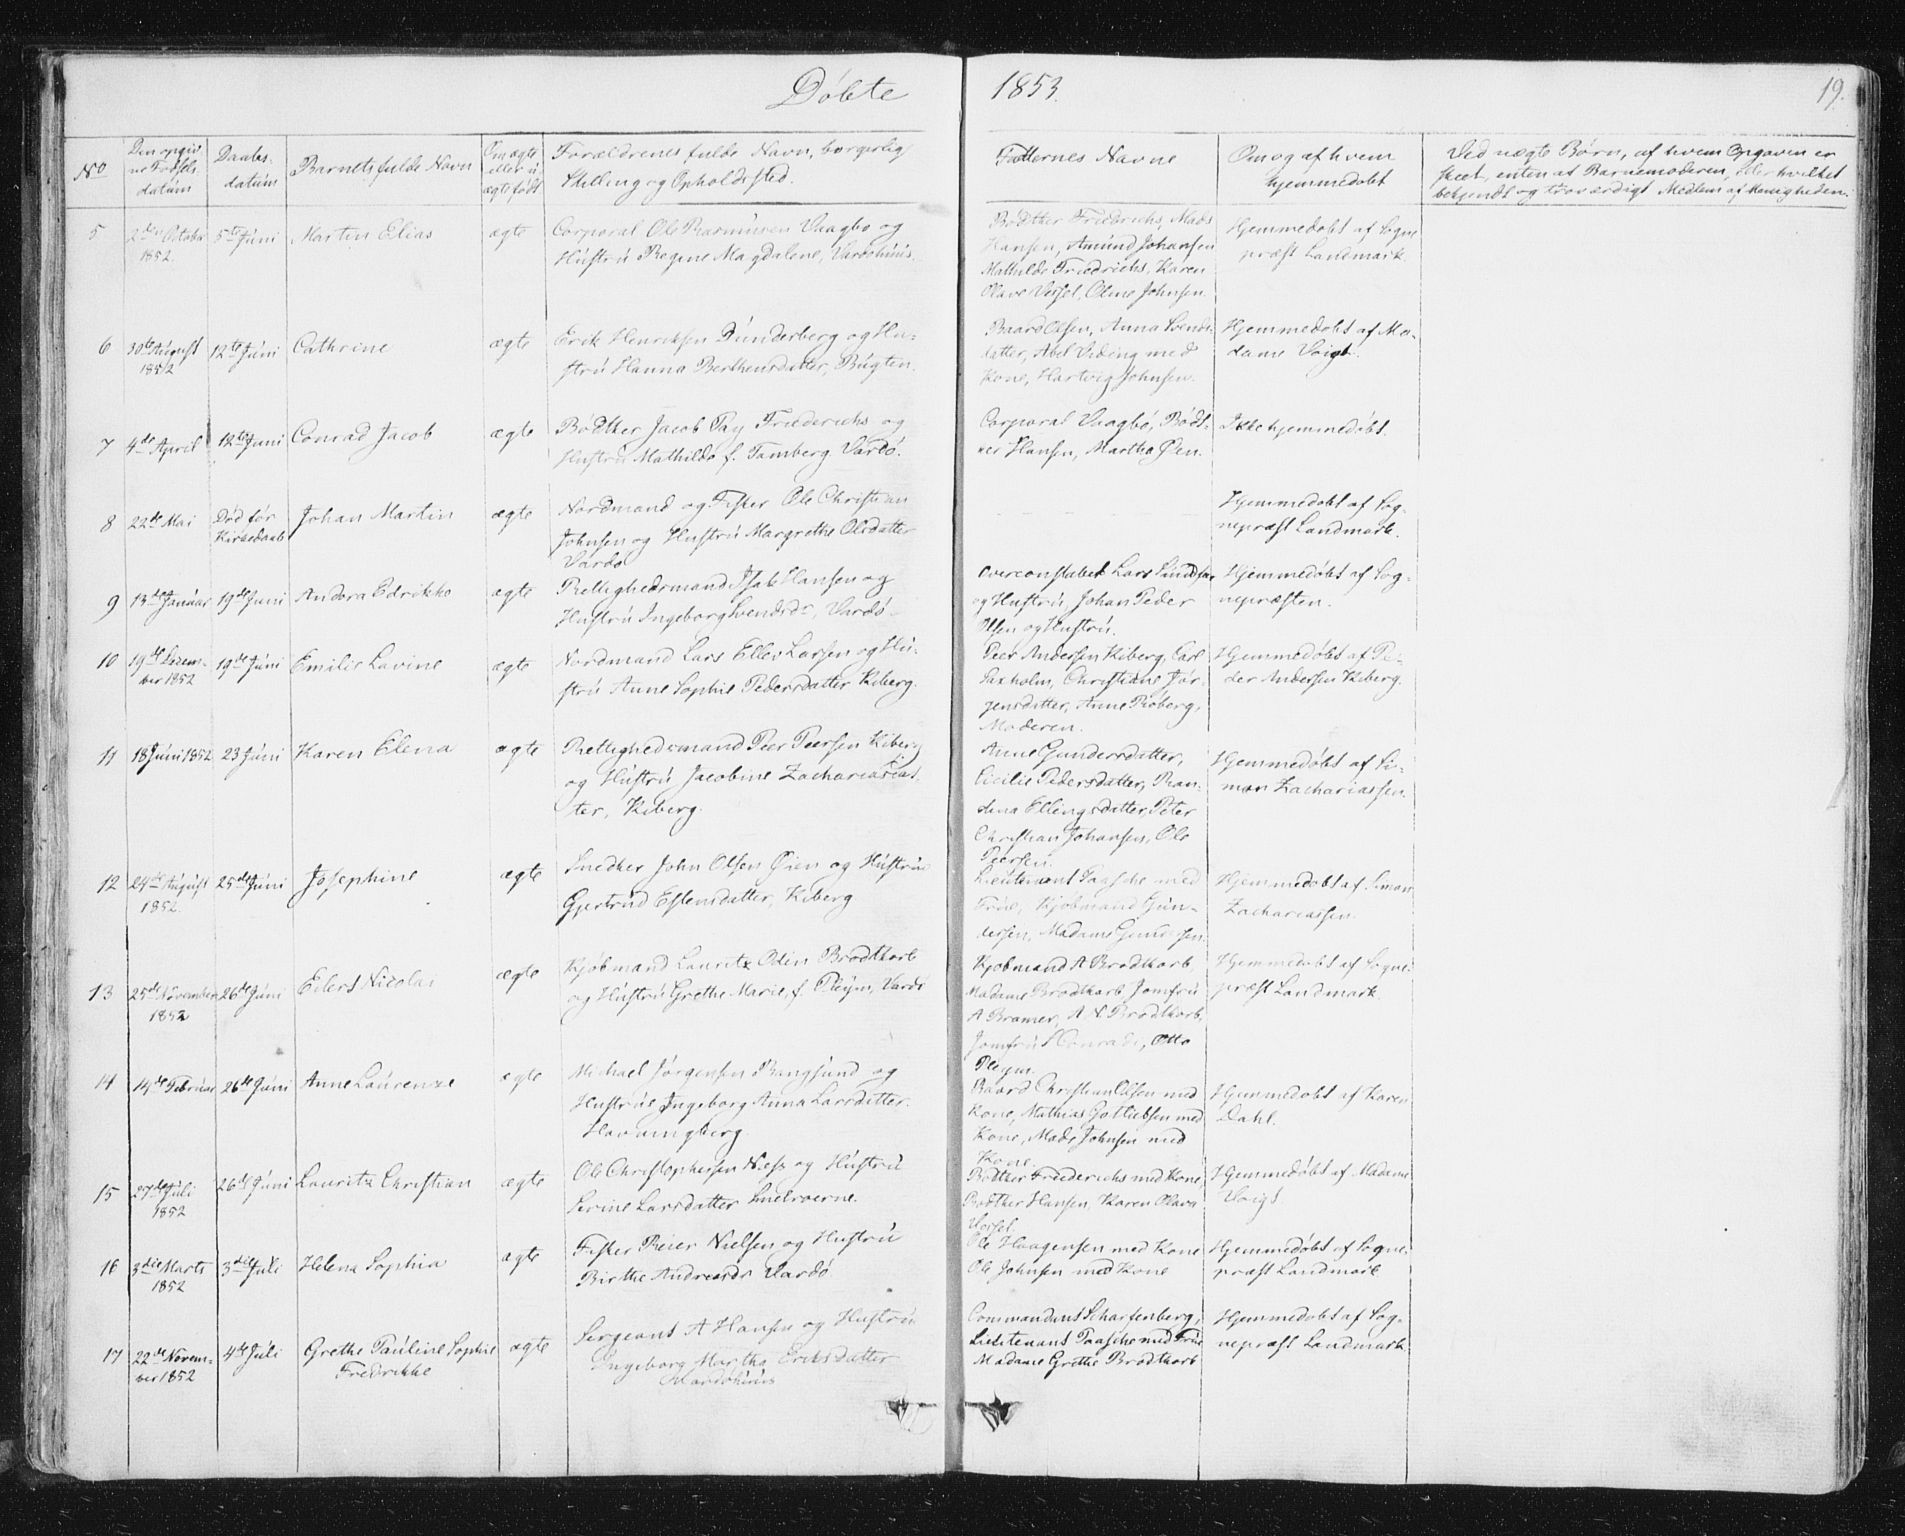 Döbte 1853. 19.
No
Den opgivne Födselsdatum
Daabsdatum
Barnets fulde Navn
Om ægte eller uægte født
Forældrenes fulde Navn, borgerlig
Stilling og Opholdssted.
Faddernes Navne
Om og af hvem
hjemmedöbt
Ved uægte Børn, af hvem Opgaven er
skeet, enten af Barnemoderen, eller hvilket
bekjendt og troværdigt Medlem af Menigheden.
5 2den October 5te Juni Martin Elias ægte Corporal Ole Rasmussen Vaagbø og
1852. Hustrú Regine Magdalene, Vardöhúús.
Bödtker Friedrichs, Mads
Hansen, Amúnd Johansen
Mathilde Friedrichs, Karen
Olave Vessel, Oline Johnsen.
Hjemmedöbt af Sogne
præst Landmark.
6 30te August 12te Júni Cathrine ægte Erik Henriksen Dúnderberg og Hu-
1852 strú Hanna Berthensdatter, Búgten.
Baard Olsen, Anna Svends-
datter, Abel Viding med
Kone, Hartvig Johnsen.
Hjemmedöbt af Ma-
dame Voigt.
7 4de April 12te Juni Conrad Jacob ægte Bödtker Jacob Pay Friederichs og
Hustrú Mathilde f. Tamberg Vardö.
Corporal Vaagbö, Bödt-
ker Hansen, Martha Øien.
Ikke hjemmedöbt.
8 22de Mai Död för Johan Martin ægte Nordmand og Fisker Ole Christian
Kirkedaab Johnsen og Hustrú Margrethe Olsdatter
Vardö
Hjemmedöbt af Sog-
nepræst Landmark.
9 13de Januar 19de Juni Andora Edrikke ægte Rettighedsmand Isak Hansen og
Hustrú Ingeborg Svendsdr, Vardö
Overconstabel Lars
og Hustrú, Johan Peder
Olsen og Hustrú.
Hjemmedöbt af Sog-
nepræsten.
10 19de Decem- 19de Júni Emilie Lavine ægte Nordmand Lars Eller Larsen og Hú-
ber 1852 strú Anne Sophie Pedersdatter Kiberg.
Peer Andersen Kiberg, Carl
Saxholm, Christiane Jör-
gensdatter, Anne Röberg,
Moderen.
Hjemmedöbt af Pe-
der Andersen Kiberg.
11 18 Júni 1852 23 Júni Karen Elena ægte Rettighedsmand Peer Peersen Kiberg
og Hústrú Jacobine Zachariasdat-
ter, Kiberg.
Anne Gundersdatter,
Cicilie Pedersdatter, Ran-
dina Ellingsdatter, Peter
Christian Johansen, Ole
Peersen.
Hjemmedöbt af Si-
mon Zachariassen.
12 24de August 25de Júni Josephine ægte Snedker John Olsen Øien og Hústrú
1852. Gjertrud Estensdatter, Kiberg
Lieutenant Paasche med
Frúe, Kjöbmand Gún-
dersen, Madame Gundersen.
Hjemmedöbt af Simon
Zachariassen.
13 25de November 26de Júni Eilert Nicolai ægte Kjöbmand Lauritz Odin Brodtkorb
1852 og Hústrú Grethe Marie, f. Pleym, Vardö
Kjöbmand A Brodtkorb,
Madame Brodtkorb Jomfrú
A Bramer, A N. Brodtkorb,
Jomfrú S Conradi, Otto
Pleym.
Hjemmedöbt af Sogne-
præst Landmark.
14 14de Februar 26de Júni Anne Laurenze ægte Michael Jörgensen Bangsund og
Hustrúe Ingeborg Anna Larsdatter.
Havningberg.
Baard Christian Olsen med
Kone, Mathias Gotliebsen med
Kone, Mads Johnsen med
Kone.
Hjemmedöbt af Karen
Dahl.
15 27de Júli 26de Júni Lauritz Christian ægte Ole Christophersen Næss og Hústrú
1852 Serine Larsdatter Smelroerne.
Bödtker Friederichs med Kone,
Bödtker Hansen, Karen Olava
Vessel.
Hjemmedöbt af Madame
Voigt
16 3die Marts 3die Júli Helena Sophia ægte Fisker Reier Nielsen og Hustrú
1852 Birthe Andreasdr Vardö
Ole Haagensen med Kone
Ole Johnsen med Kone
Hjemmedöbt af Sogne-
præst Landmark
17 22de Novem- 4de Júli Grethe Paúline Sophie ægte Sergeant A Hansen og Hústrú
ber 1852 Fredrikke Ingeborg Martha Eriksdatter
Vardöhúús
Commandant Scharfenberg,
Lieutenant Paasche med Frúe
Madame Grethe Brodtkorb
Hjemmedöbt af Sog-
nepræst Landmark.